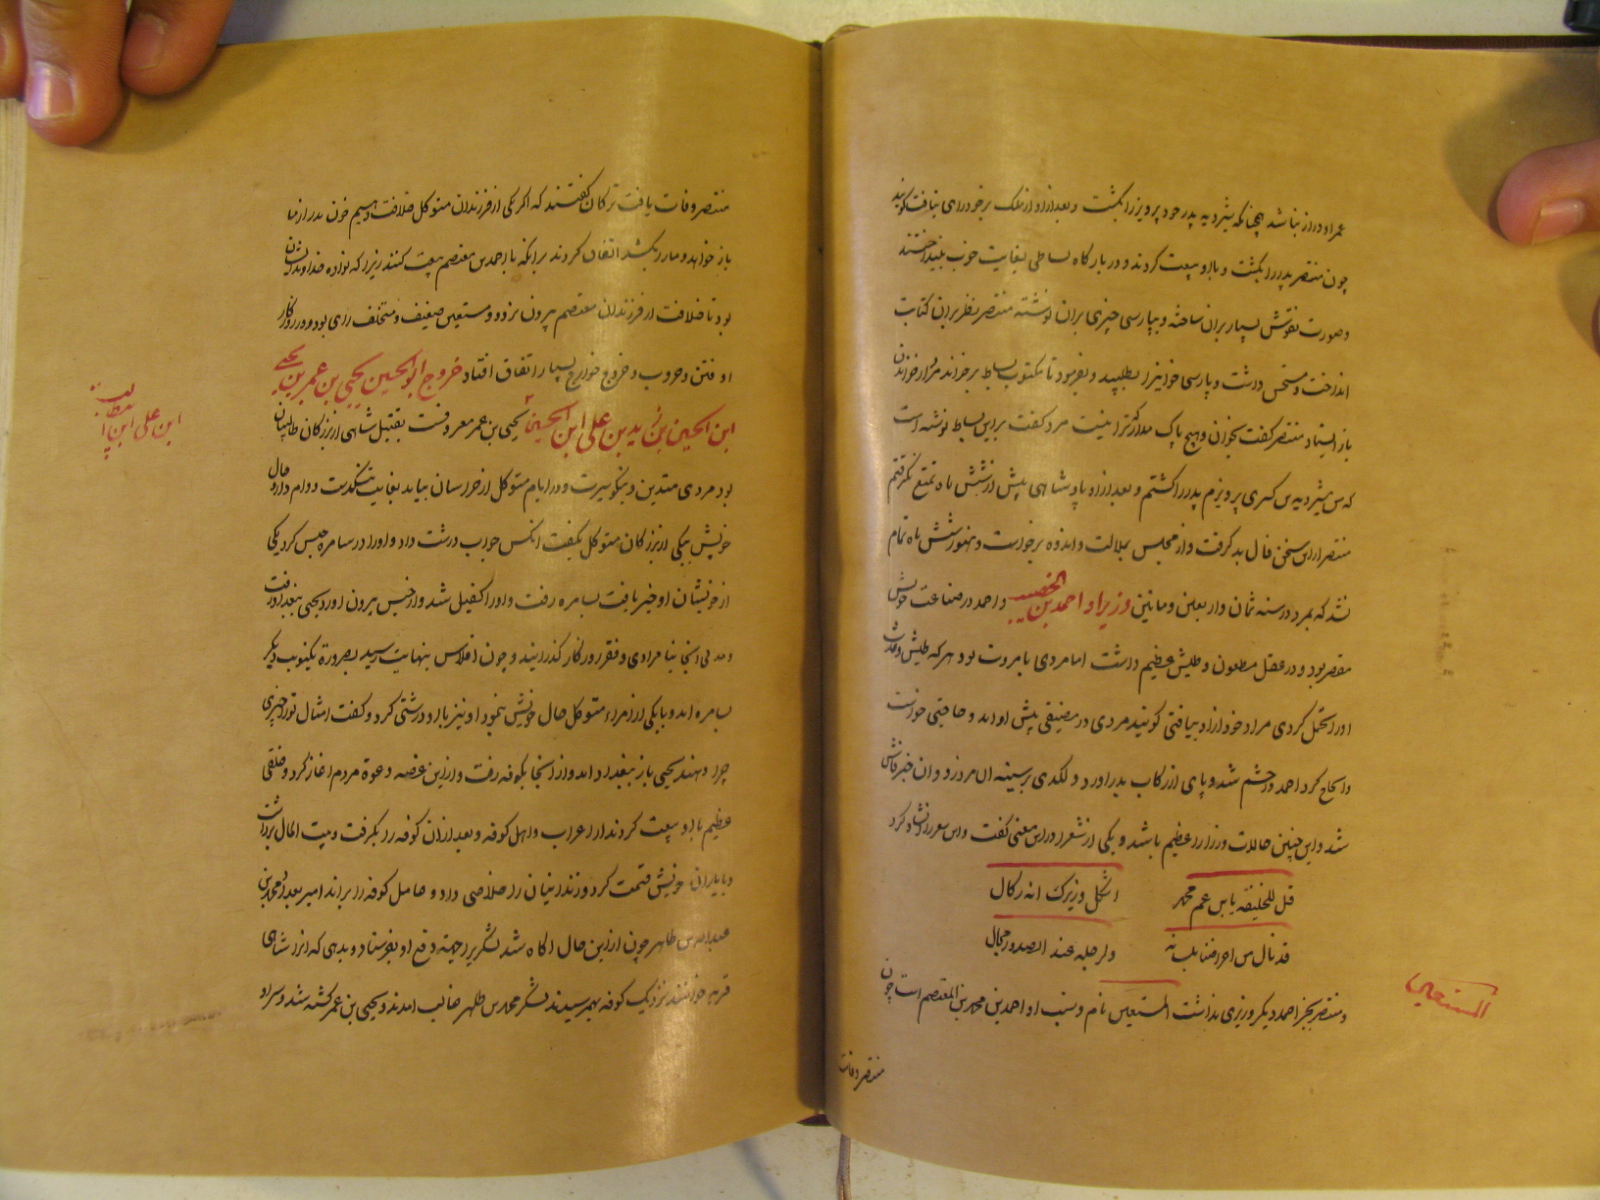 عمر او دراز نباشد چنانکه شیرویه پدر خود پرویز را بکشت و بعد از او از ملک برخورداری نیافت گویند
چون منتصر پدر را بکشت و با او بیعت کردند و در بارگاه بساطی بغایت خوب بینداختند
و صورت نقوش بسیار بران ساخته و بپارسی چیزی بران نوشته منتصر نظر بران کتابت
انداخت و مستحسن داشت و پارسی خوانیرا بطلبید و بفرمود تا مکتوب بساط برخواند مرد از خواندن
باز ایستاد منتصر گفت بخوان و هیچ باک مدار که ترا نیست مرد گفت برین بساط نوشته است
که من شیرویه بن کسری پرویزم پدر را کشتم و بعد از او پادشاهی بیش از شش ماه تمتع نگرفتم
منتصر از این سخن فال بد گرفت و از مجلس بملالت و اندوه برخواست و هنوز شش ماه تمام
نشد که بمرد در سنه ثمان و اربعین و مایتین وزیر او احمد بن الخصیب و احمد در صناعت خویش
مقصر بود و در عقل مطعون و طیش عظیم داشت اما مردی با مروت بود هر که طیش و حدت
او را تحمل کردی مراد خود از او بیافتی گویند مردی در مضیقی پیش او امد و حاجتی خواست
و الحاح کرد احمد در خشم شد و پای از رکاب بدر اورد و لگدی بر سینه ان مرد زد و ان خبر فاش
شد و این چنین حالات وزرا را عظیم باشد و یکی از شعرا در این معنی گفت و این شعر را انشاد کرد
قل للخلیفه یا بن عم محمد اشکل وزیرک انه رکال
قد نال من اعراضنا بلسانه ولرجله عند الصدور مجال
المستعین
و منتصر بجز احمد دیگر وزیری نداشت المستعین نام و نسب او احمد بن محمد بن المعتصم است چون
منتصر وفات
منتصر وفات یافت ترکان گفتند که اگر یکی از فرزندان متوکل خلافت دهیم خون پدر از ما
باز خواهد و ما را بکشد اتفاق کردند برانکه با احمد بن معتصم بیعت کنند زیرا که نواده خداوندشان
بود تا خلافت از فرزندان معتصم بیرون نرود و مستعین ضعیف و متخلف رای بود و در روزگار
او فتن و حروب و خروج خوارج بسیار اتفاق افتاد خروج ابو الحسین یحیی بن عمر بن یحیی
ابن الحسین بن زید بن علی ابن الحسین یحیی بن عمر معروفست بقتیل شاهی از بزرگان طالبیان
ابن علی ابن ابیطالب
بود مردی متدین و نیکو سیرت و در ایام متوکل از خراسان بیامد بغایت تنکدست و وام دار و حال
خویش بیکی از بزرگان متوکل بگفت انکس جواب درشت داد و او را در سامره حبس کرد یکی
از خویشان او خبر یافت بسامره رفت و او را کفیل شد و از حبس بیرون اورد یحیی ببغداد رفت
و مدتی انجا بنامرادی و فقر روزگار گذرانید و چون افلاس بنهایت رسید بضرورة یکنوبت دیگر
بسامره امد و با یکی از امراء متوکل حال خویش بنمود او نیز با او درشتی کرد و گفت امثال تو را چیزی
چرا دهند یحیی باز ببغداد امد و از انجا بکوفه رفت و از این غصه دعوة مردم اغاز کرد و خلقی
عظیم با او بیعت کردند از اعراب و اهل کوفه و بعد از ان کوفه را بگرفت و بیت المال برداشت
و با یاران خویش قسمت کرد و زندانیان را خلاصی داد و عامل کوفه را براند امیر بغداد محمد بن
عبدالله بن طاهر چون از این حال اگاه شد لشگری را جهة دفع او بفرستاد و بدهی که انرا شاهی
قریه خوانند نزدیک کوفه بهم رسیدند لشگر محمد بن طاهر غالب امدند و یحیی بن عمر کشته شد و سر او